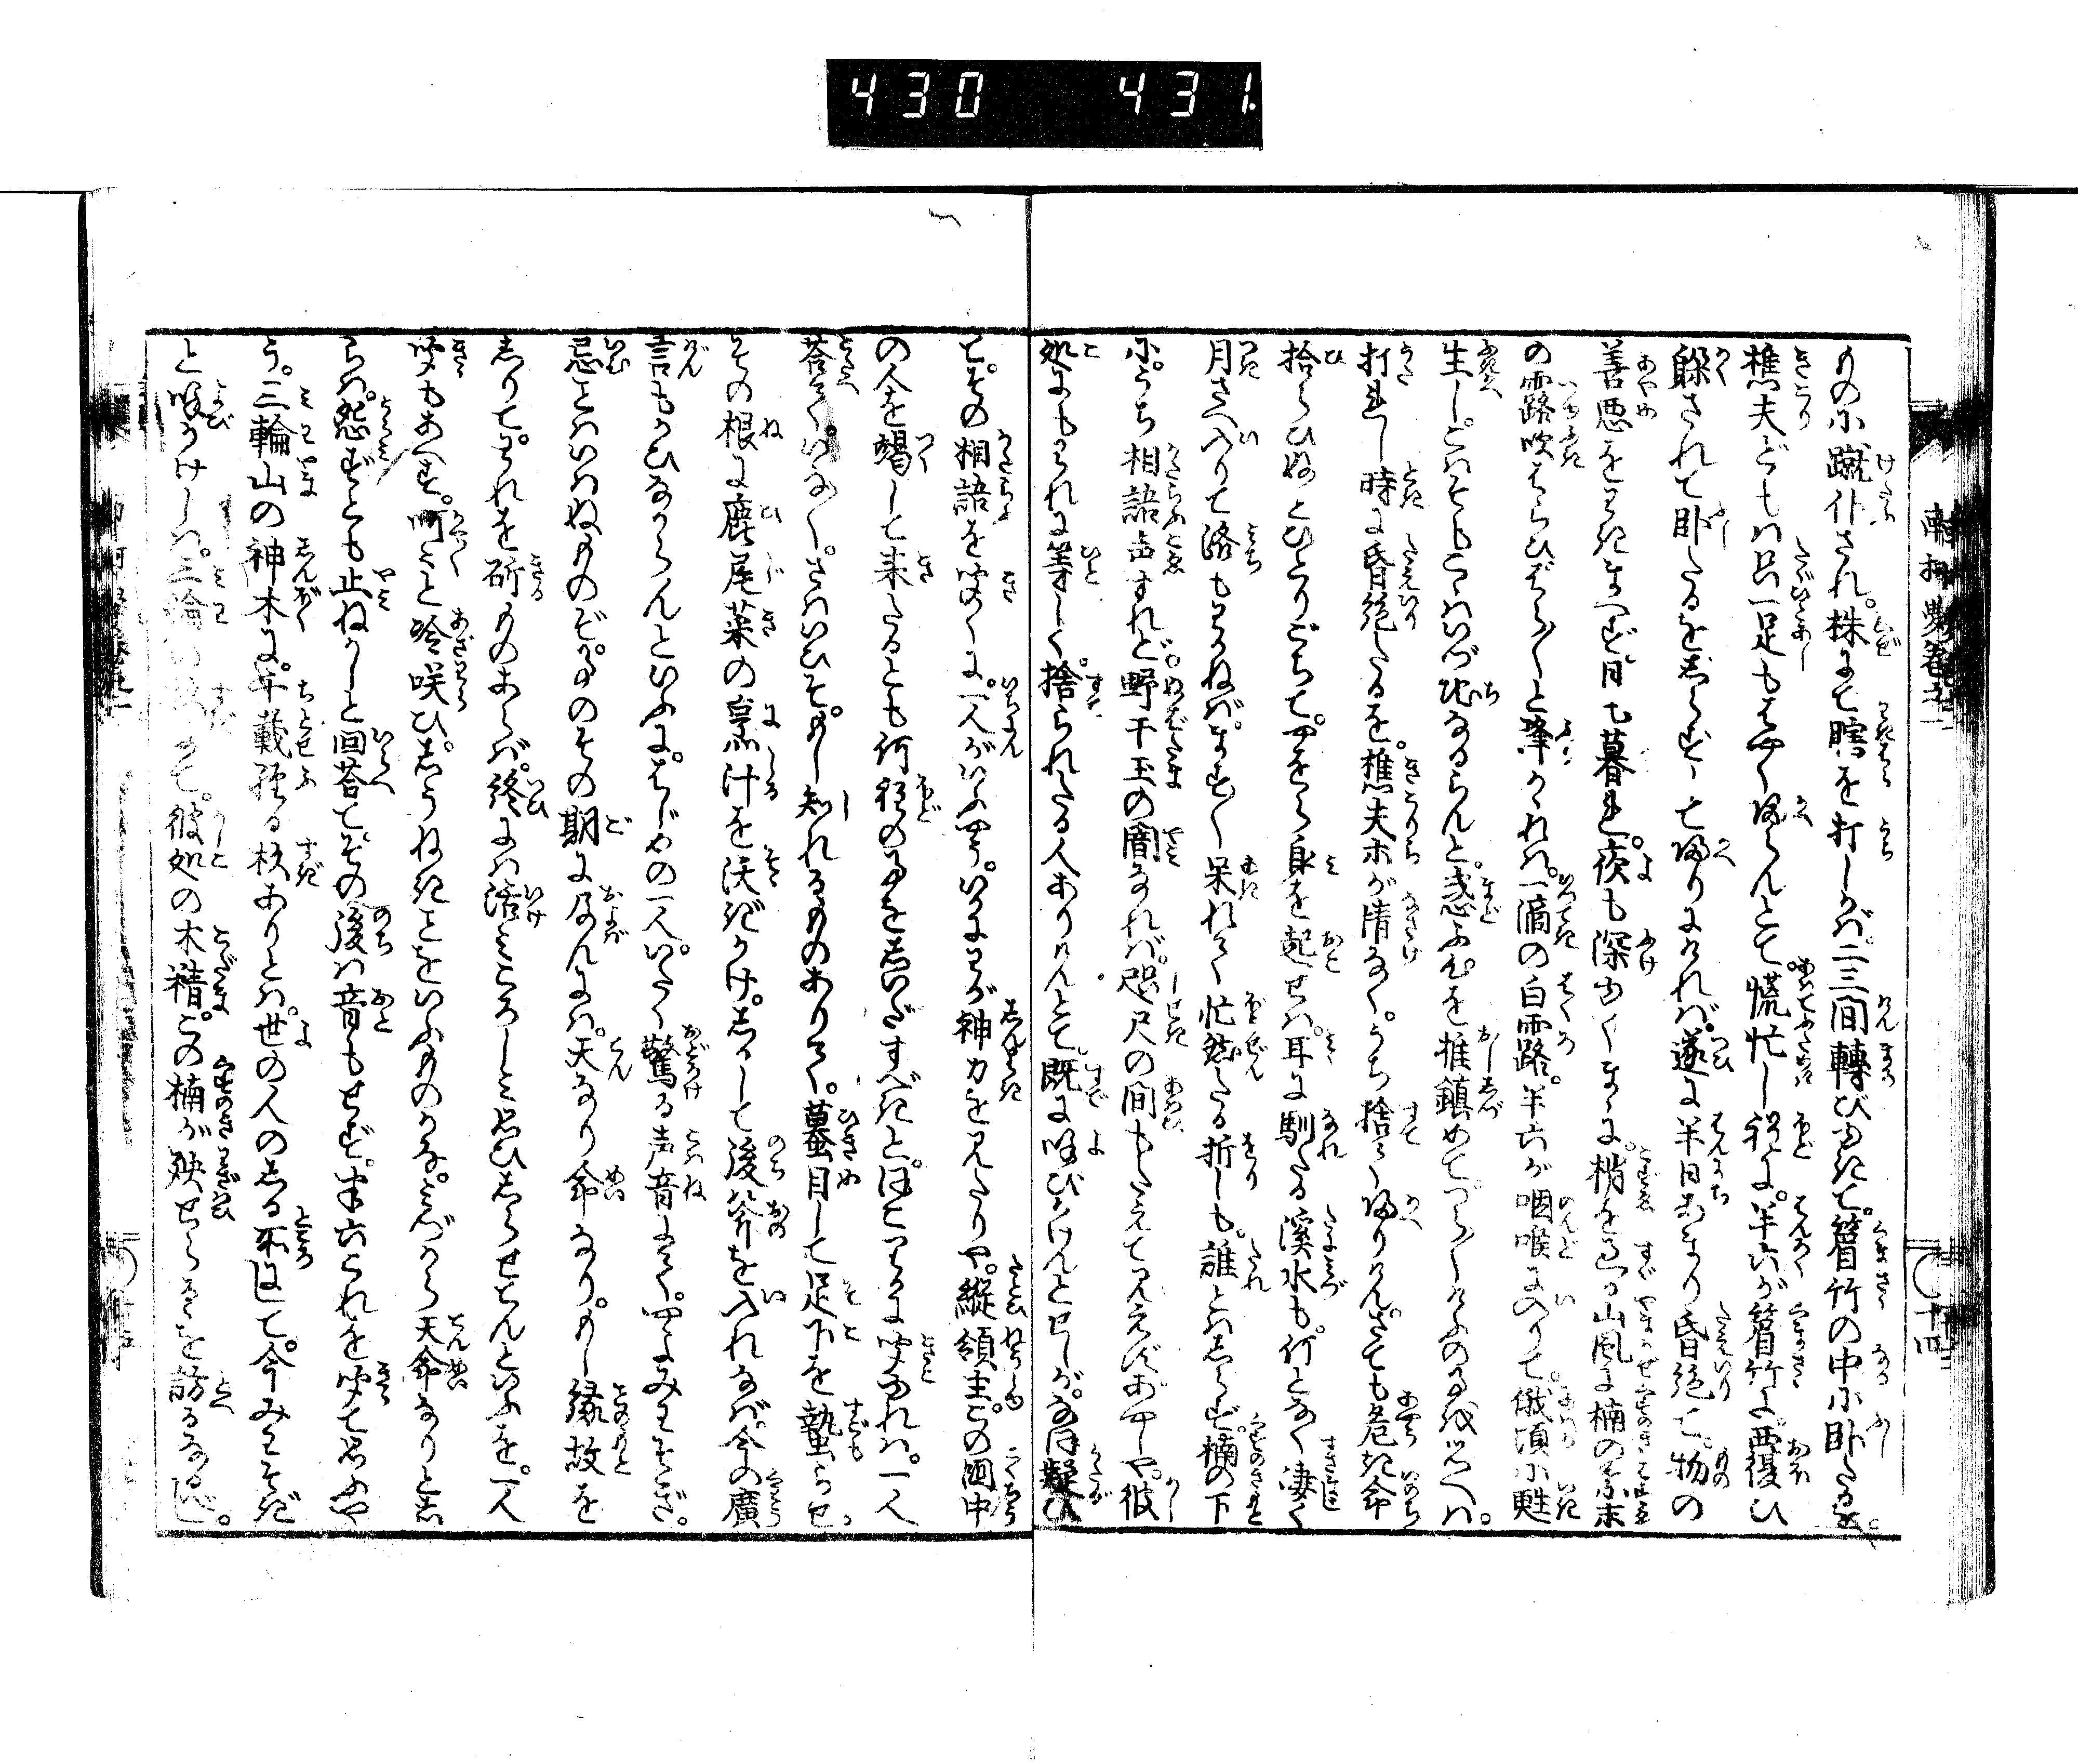 430 431
ものに蹴仆され。株にて瞎を打しかば二三間轉び出て。䈽竹の中に臥たるを。
樵夫どもは只一足もはやく歸らんとて。慌忙し程に。半六が䈽竹に覆ひ
躱されて臥たるをしらずして歸りにければ。遂に半日あまり昏絶て。物の
善悪をわきまへず日も暮れ。夜も深ゆくまゝに。梢を過る山風に楠の葉末
の露吹はらひはら〳〵と降かゝれは。一滴の白露。半六が咽喉に入りて。俄頃に甦
生し。こはそもこゝはいづ地なるらんと。惑ふ心を推鎮めてつら〳〵けふの事を思へは。
打れし時に昏絶したるを。樵夫ホが情なく。うち捨て歸りけん。さても危き命
拾らひぬとひとりごちて。やをら身を起せは。耳に馴たる溪水も。何となく凄く
月さへ入りて路もわかねば。ます〳〵呆れて忙然たる折しも。誰とはしらず楠の下
にうち相語声すれど。野干玉の闇なれば。咫尺の間もたえて見えずあやしや。彼
処にもわれに等しく。捨られたる人ありけんとて。既に呼びかけんとせしが。なほ疑ひ
て。その相語を聞くに。一人がいふやう。いかにわが神力を見たりや。縦領主。この国中
の人を竭して来たるとも何程の事をしいだすべきと。ほこりかに聞ゆれは。一人
荅ていな〳〵。さはいひそ。もし知れるものありて。蟇目して足下を蟄らせ。
その根に鹿尾菜の煮汁を沃ぎかけ。しかして後斧を入れなば。今の廣
言もかひなからんといふに。はじめの一人。いたく驚る声音にて。やよみそかぎ。
忌ことはいはぬものぞかし。のその期に及んには。天なり命なり。もし縁故を
しりて。われを斫ものあらば。終には活みころしみ思ひしらせなんといふを。一人
聞もあへず。呵々と冷咲ひ。しうねきことをいふものかな。みづから天命なりとし
らは。怨ずとも止ねかしと回荅てその後は音もせず。半六これを聞て思ふや
う。三輪山の神木に。千載経る杉ありとは。世の人のしる所にして。今みわすぎ
と喚かけしは。三輪の杉にて。彼処の木精。この楠が殃せらるゝを訪るなるべし。